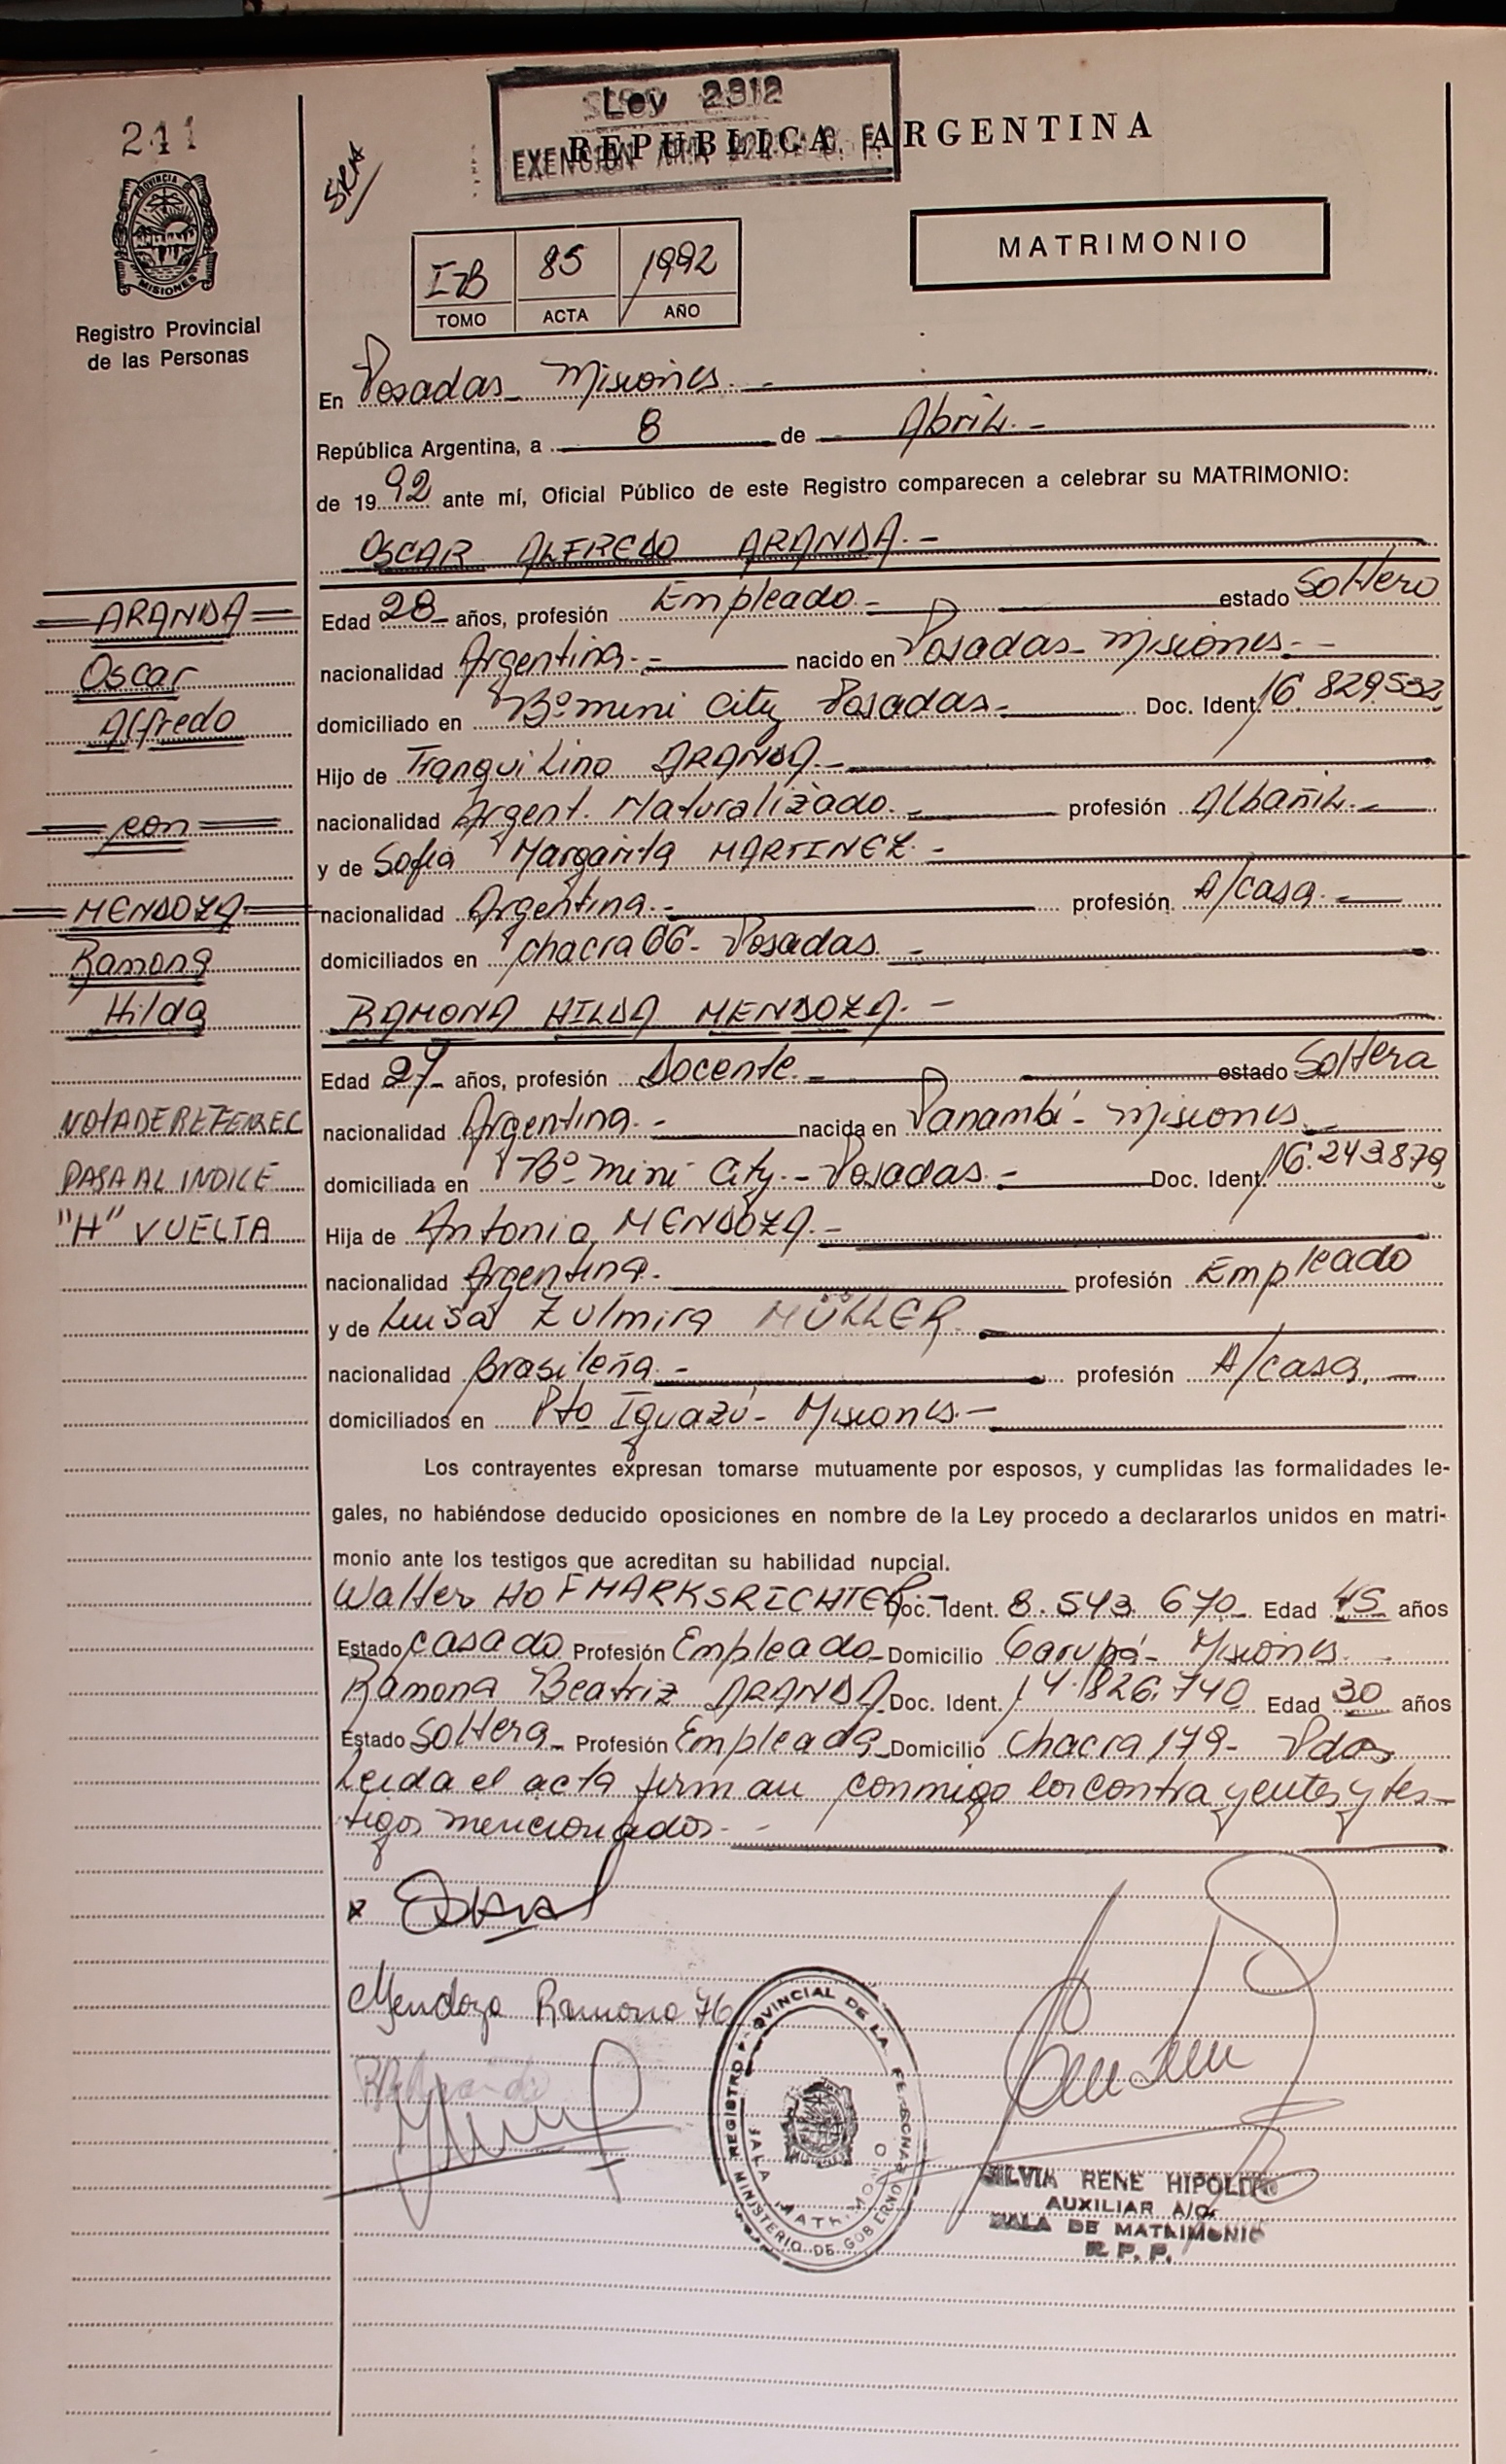 241
Ley 2912
REPUBLICA ARGENTINA
EXENCION
MATRIMONIO
PROVINCIA DE
MISIONES
Registro Provincial
de las Personas
I-B 85 1992
TOMO ACTA AÑO
En Posadas Misiones.-
República Argentina, a 8 de Abril.-
de 1992 ante mí, Oficial Público de este Registro comparecen a celebrar su MATRIMONIO:
OSCAR ALFREDO ARANDA.-
ARANDA
Oscar
Alfredo
con
MENDOZA
Ramona
Hilda
NOTA DE REFEREC
PASA AL INDICE
"H" VUELTA
Edad 28 años, profesión Empleado.- estado Soltero
nacionalidad Argentina.- nacido en Posadas- Misiones.-
domiciliado en Bº mini City Posadas.- Doc. Ident. 16.829532
Hijo de Tranquilino ARANDA.-
nacionalidad Argent. Naturalizado.- profesión Albañil.-
y de Sofia Margarita MARTINEZ.-
nacionalidad Argentina.- profesión A/casa.-
domiciliados en chacra 66- Posadas.-
RAMONA HILDA MENDOZA.-
Edad 27 años, profesión Docente.- estado Soltera
nacionalidad Argentina.- nacida en Panambí- Misiones.-
domiciliada en Bº mini City.- Posadas.- Doc. Ident. 16.243879
Hija de Antonio MENDOZA.-
nacionalidad Argentina.- profesión Empleado
y de Luisa Zulmira MÜLLER.
nacionalidad Brasileña.- profesión A/casa.-
domiciliados en Pto Iguazú- Misiones.-
Los contrayentes expresan tomarse mutuamente por esposos, y cumplidas las formalidades le-
gales, no habiéndose deducido oposiciones en nombre de la Ley procedo a declararlos unidos en matri-
monio ante los testigos que acreditan su habilidad nupcial.
Walter HOFMARKSRICHTER.- Doc. Ident. 8.543.670 Edad 45 años
Estado casado Profesión Empleado Domicilio Garupá- Misiones.
Ramona Beatriz ARANDA Doc. Ident. 14.826.740 Edad 30 años
Estado Soltera Profesión Empleada Domicilio Chacra 179- Pdas
Leida el acta firman conmigo los contrayentes y tes-
tigos mencionados.-
Mendoza Ramona H.
REGISTRO PROVINCIAL DE LAS PERSONAS
SALA MATRIMONIO
MINISTERIO DE GOBIERNO
SILVIA RENE HIPOLITO
AUXILIAR A/C.
SALA DE MATRIMONIO
R. P. P.